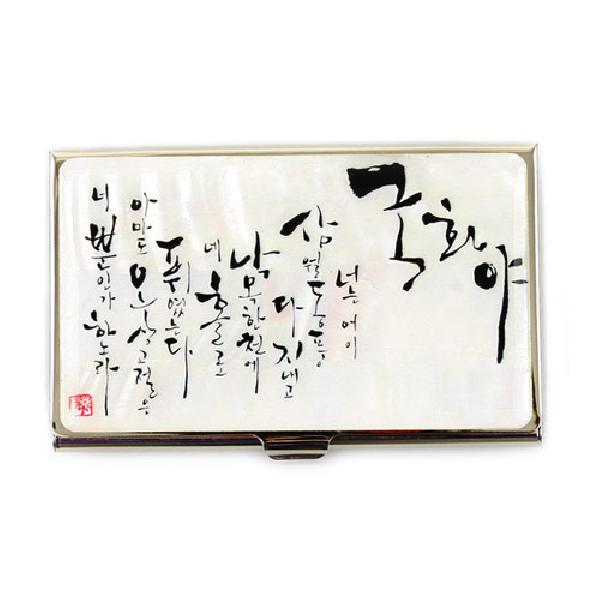 국화야
너는 어이
삼월동풍
다 지내고
낙목한천에
네 홀로
퓌였는다
아마도 오상고절은
너뿐인가 하노라